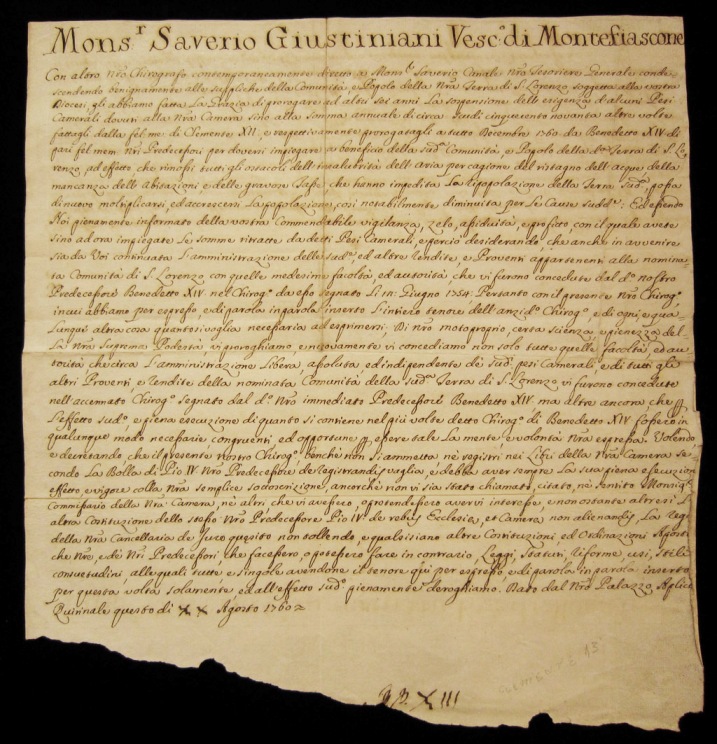 Mons.r Saverio Giustiniani Vesc.o di Montefiascone
Con altro Nro Chirografo contemporaneamente diretto a Mons.r Saverio Canale Nro Tesoriere Generale conde-
scendendo benignamente alle suppliche della Comunità, e Popolo della Nra Terra di S. Lorenzo soggetta alla vostra
Diocesi, gli abbiamo fatta la Grazia di prorogare ad altri sei anni la sospensione dell'esigenza d'alcuni Pesi
Camerali dovuti alla Nra Camera sino alla somma annuale di circa scudi cinquecento novanta altre volte
fattagli dalla fel: me: di Clemente XII, e respettivamente prorogatagli a tutto Decembre 1760 da Benedetto XIV di
pari fel: mem: Nri Predecessori per doversi impiegare a beneficio della sud.a Comunità, e Popolo della d.a Terra di S. Lo-
renzo, ad effetto, che rimossi tutti gli ostacoli dell'insalubrità dell'Aria per cagione del ristagno dell'acque della
mancanza dell'Abitazioni e delle gravose Tasse, che hanno impedita la ripopolazione della Terra sud.a, possa
di nuovo moltiplicarsi, ed accrescersi la popolazione, così notabilmente diminuita per le Cause sudd.e; Ed essendo
Noi pienamente informato della vostra Commendabile vigilanza, zelo, assiduità, e profitto, con il quale avete
sino ad ora impiegate le somme ritratte da detti Pesi Camerali, e perciò desiderando, che anche in avvenire
sia da Voi continuata l'amministrazione delle sud.e, ed altre rendite, e Proventi appartenenti alla nomina-
ta Comunità di S. Lorenzo con quelle medesime facoltà, ed autorità, che vi furono concedute dal d.o nostro
Predecessore Benedetto XIV nel Chirog.o da esso segnato li Giugno 1754: Pertanto con il presente Nro Chirog.o
in cui abbiamo per espresso, e di parola in parola inserto l'intiero tenore dell'anzid.o Chirog.o, e di ogni, e qua-
lunque altra cosa quantosivoglia necessaria ad esprimersi; Di Nro motoproprio, certa scienza, e pienezza del-
la Nra Suprema Podestà, vi proroghiamo, e nuovamente vi concediamo non solo tutte quelle facoltà, ed au-
torità che circa l'amministrazione libera, assoluta, ed indipendente de' sud.i pesi Camerali, e di tutti gli
altri Proventi e rendite della nominata Comunità della sud.a Terra di S. Lorenzo vi furono concedute
nell'accennato Chirog.o segnato dal d.o Nro immediato Predecessore Benedetto XIV ma altre ancora che p
l'effetto sud.o, e piena esecuzione di quanto si contiene nel più volte detto Chirog.o di Benedetto XIV fossero in
qualunque modo necessarie congruenti ed opportune, p essere tale la mente, e volontà Nra espressa. Volendo,
e decretando che il presente nostro Chirog.o, benchè non si ammetta nè registri nei Libri della Nra Camera se-
condo la Bolla di Pio IV Nro Predecessore de registrandis vaglia, e debba aver sempre la sua piena esecuzione
effetto, e vigore colla Nra semplice sodoscrizione, ancorchè non vi sia stato chiamato, citato, nè sentito Monsig.r
Commissario della Nra Camera, nè altri che vi avesse, o pretendessero avervi interesse, e non ostante altresì l'
altra Costituzione dello stesso Nro Predecessore Pio IV de rebus Ecclesiæ, et Cameræ non alienandis, la reg.
della Nra Cancellaria de Jure quesito non tollendo, e qualsisiano altre Costituzioni, ed Ordinazioni Apost.
che Nre, e de' Nri Predecessori, che facessero, o potessero fare in contrario, Leggi, Statuti, riforme, usi, stili
consuetudini, alle quali tutte, e singole avendone il tenore qui per espresso, e di parola in parola inserto
per questa volta solamente, ed all'effetto sud.o pienamente deroghiamo. Dato dal Nro Palazzo Aplico
Quirinale questo dì XX Agosto 1760
XIII
13